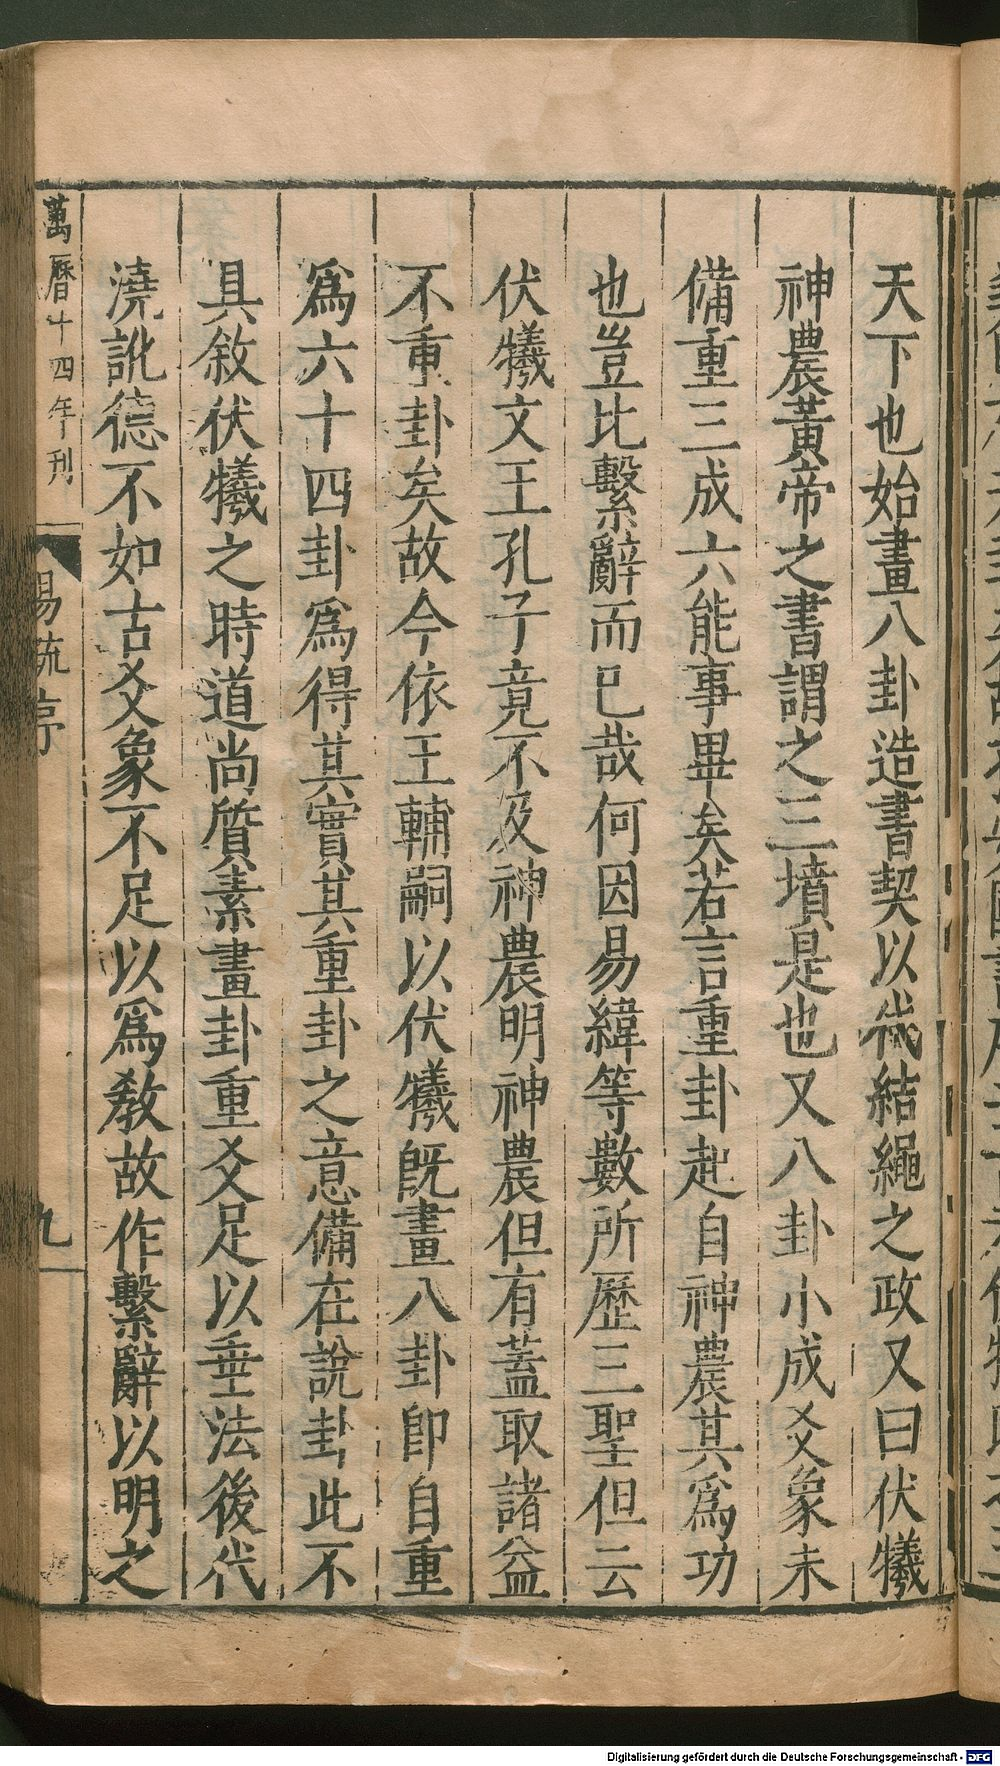 天下也始畫八卦造書契以代結繩之政又曰伏犧
神農黃帝之書謂之三墳是也又八卦小成爻象未
備重三成六能事畢矣若言重卦起自神農其爲功
也豈比繫辭而已哉何因易緯等數所歷三聖但云
伏犧文王孔子竟不及神農明神農但有蓋取諸益
不重卦矣故今依王輔嗣以伏犧既畫八卦卽自重
爲六十四卦爲得其實其重卦之意備在說卦此不
具敘伏犧之時道尚質素畫卦重爻足以垂法後代
澆訛德不如古爻象不足以爲敎故作繫辭以明之
萬曆十四年刊
易疏序
九
Digitalisierung gefördert durch die Deutsche Forschungsgemeinschaft - DFG